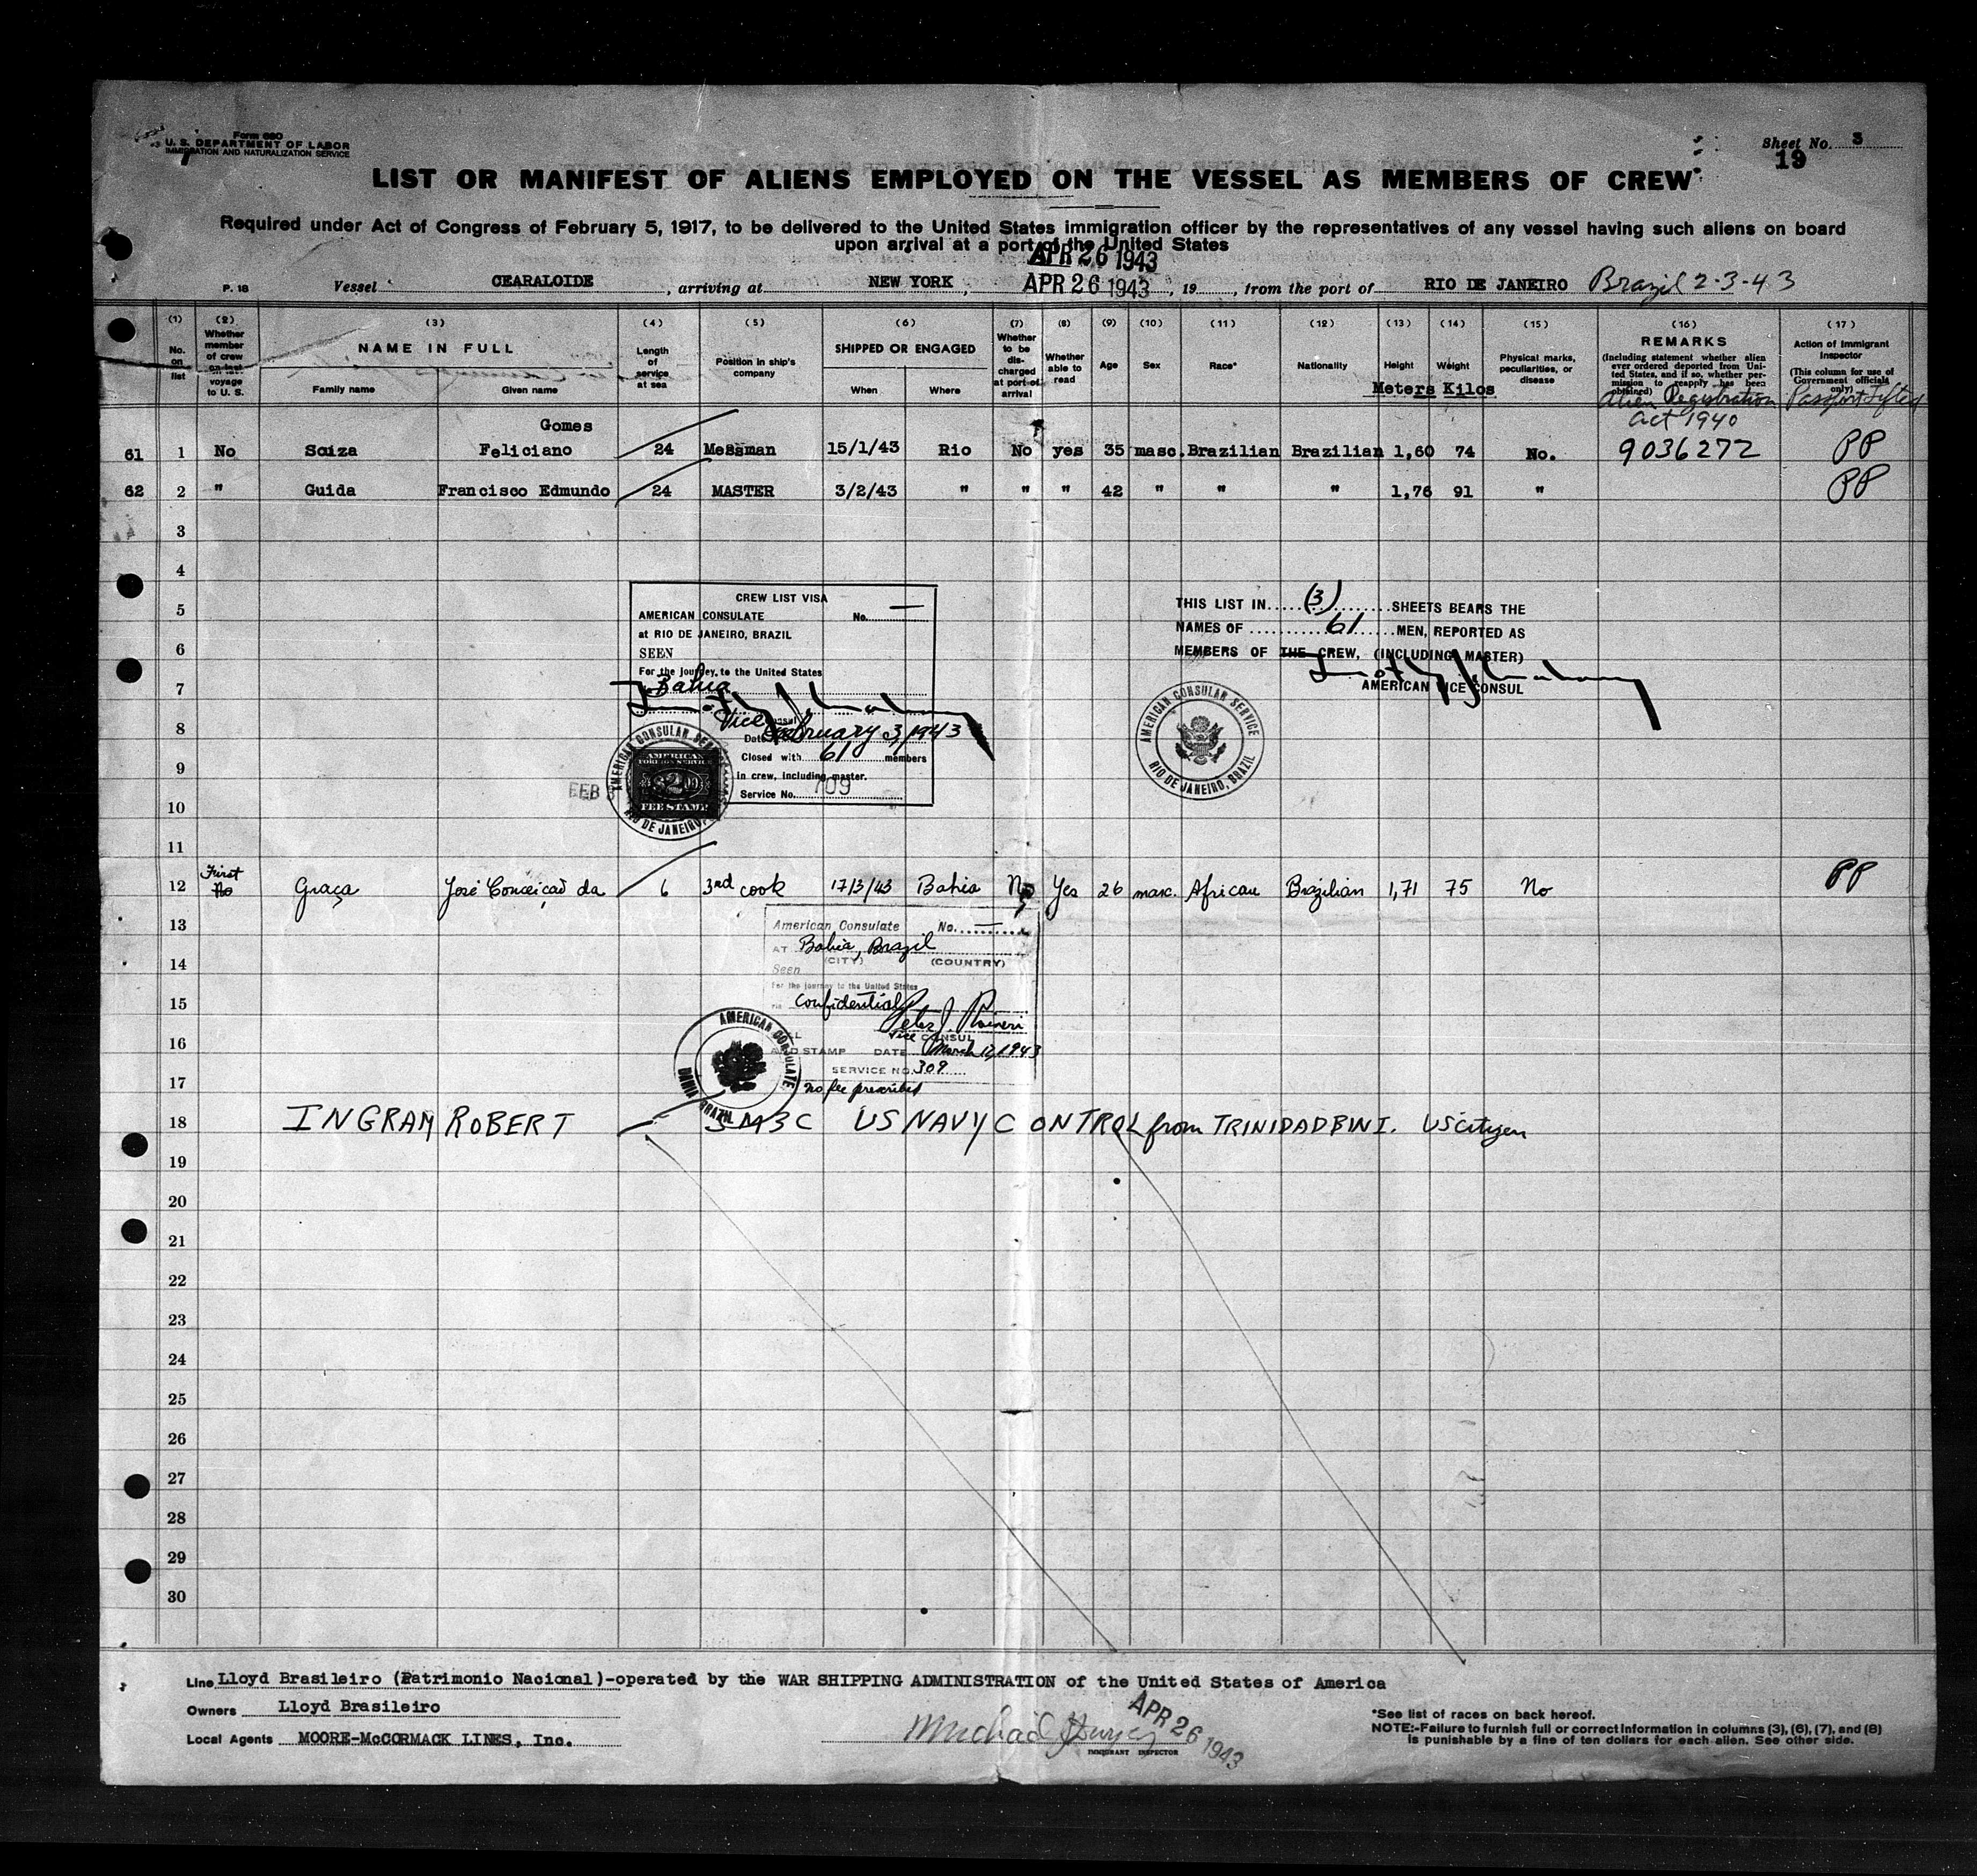 Form 680
U. S. DEPARTMENT OF LABOR
IMMIGRATION AND NATURALIZATION SERVICE
Sheet No. 3
19
LIST OR MANIFEST OF ALIENS EMPLOYED ON THE VESSEL AS MEMBERS OF CREW
Required under Act of Congress of February 5, 1917, to be delivered to the United States immigration officer by the representatives of any vessel having such aliens on board
upon arrival at a port of the United States
APR 26 1943
P. 18 Vessel CEARALOIDE, arriving at NEW YORK, APR 26 1943, 19, from the port of RIO DE JANEIRO Brazil 2-3-43
(1) (2) (3) (4) (5) (6) (7) (8) (9) (10) (11) (12) (13) (14) (15) (16) (17)
No. on list
Whether member of crew on last voyage to U. S.
NAME IN FULL
Family name Given name
Length of service at sea
Position in ship's company
SHIPPED OR ENGAGED
When Where
Whether to be discharged at port of arrival
Whether able to read
Age Sex Race* Nationality Height Weight
Meters Kilos
Physical marks, peculiarities, or disease
REMARKS
(Including statement whether alien ever ordered deported from United States, and if so, whether permission to reapply has been obtained)
Alien Registration
Act 1940
Action of Immigrant Inspector
(This column for use of Government officials only)
Gomes
61 1 No Souza Feliciano 24 Messman 15/1/43 Rio No yes 35 masc. Brazilian Brazilian 1,60 74 No. 9036272 PP
62 2 " Guida Francisco Edmundo 24 MASTER 3/2/43 " " " 42 " " " 1,76 91 " PP
3
4
5
6
7
8
9
10
11
CREW LIST VISA
AMERICAN CONSULATE No. —
at RIO DE JANEIRO, BRAZIL
SEEN
For the journey to the United States
Bahia
Vice Consul
Date February 3, 1943
Closed with 61 members
in crew, including master.
Service No. 709
FEB 3
AMERICAN CONSULAR SERVICE
RIO DE JANEIRO,
AMERICAN
FOREIGN SERVICE
$2.00
FEE STAMP
THIS LIST IN (3) SHEETS BEARS THE
NAMES OF 61 MEN, REPORTED AS
MEMBERS OF THE CREW, (INCLUDING MASTER)
AMERICAN VICE CONSUL
AMERICAN CONSULAR SERVICE
RIO DE JANEIRO, BRAZIL
First
12 No Graça José Conceição da 6 3rd cook 17/3/43 Bahia No Yes 26 masc. African Brazilian 1,71 75 No PP
13
14
15
16
17
American Consulate No. —
AT Bahia, Brazil
(CITY) (COUNTRY)
Seen
For the journey to the United States
confidential
Peter J. Raineri
Vice CONSUL
AND STAMP DATE March 17, 1943
SERVICE NO. 309
no fee prescribed
AMERICAN CONSULATE
BAHIA BRAZIL
18 INGRAM ROBERT SM3C US NAVY CONTROL from TRINIDAD BWI. US citizen
19
20
21
22
23
24
25
26
27
28
29
30
Line Lloyd Brasileiro (Patrimonio Nacional)-operated by the WAR SHIPPING ADMINISTRATION of the United States of America
Owners Lloyd Brasileiro
Local Agents MOORE-McCORMACK LINES, Inc.
APR 26 1943
IMMIGRANT INSPECTOR
*See list of races on back hereof.
NOTE:-Failure to furnish full or correct information in columns (3), (6), (7), and (8)
is punishable by a fine of ten dollars for each alien. See other side.